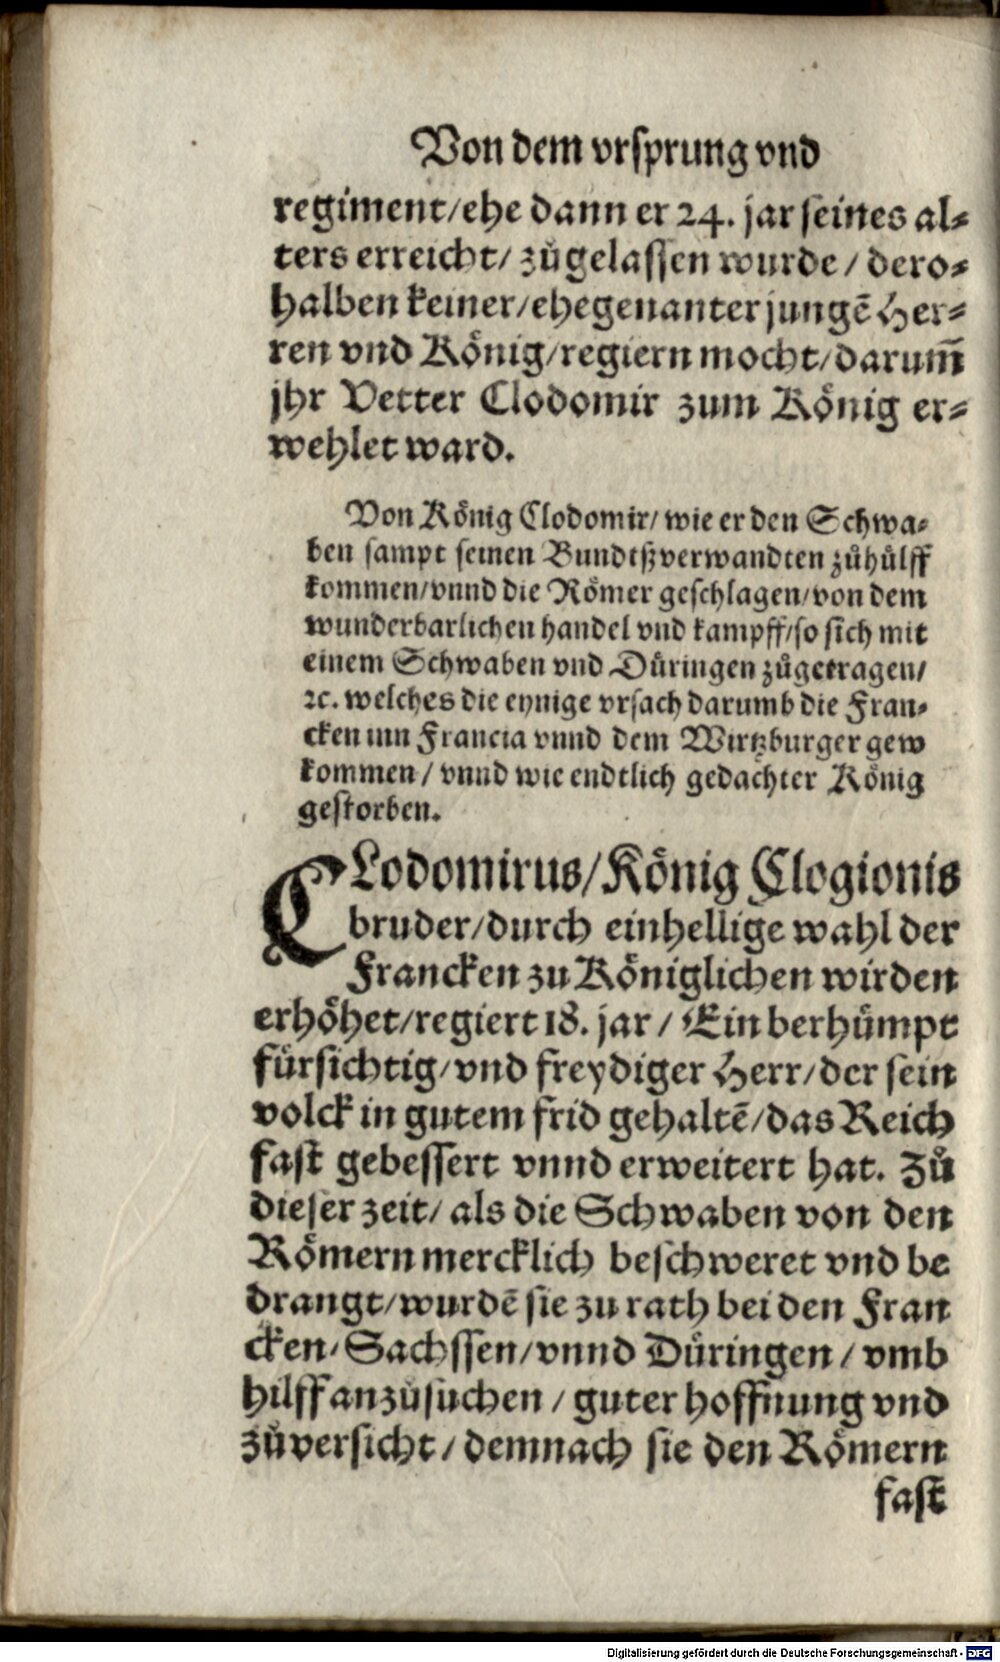 Von dem vrsprung vnd
regiment/ehe dann er 24. jar seines al⸗
ters erreicht/ zů gelassen wurde / dero⸗
halben keiner/ehegenanter jungē Her⸗
ren vnd König/regiern mocht/darum̄
jhr Vetter Clodomir zum König er⸗
wehlet ward.
Von König Clodomir/ wie er den Schwa⸗
ben sampt seinen Bundtßverwandten zůhülff
kommen/vnnd die Römer geschlagen/von dem
wunderbarlichen handel vnd kampff/so sich mit
einem Schwaben vnd Düringen zůgetragen/
ꝛc. welches die eynige vrsach darumb die Fran⸗
cken inn Francia vnnd dem Wirtzburger gew
kommen / vnnd wie endtlich gedachter König
gestorben.
CLodomirus/König Clogionis
bruder/durch einhellige wahl der
Francken zu Königlichen wirden
erhöhet/regiert 18. jar / Ein berhümpt
fürsichtig/vnd freydiger Herr/der sein
volck in gutem frid gehaltē/das Reich
fast gebessert vnnd erweitert hat. Zů
dieser zeit/ als die Schwaben von den
Römern mercklich beschweret vnd be
drangt/wurdē sie zu rath bei den Fran
cken/Sachssen/vnnd Düringen / vmb
hilff anzůsuchen / guter hoffnung vnd
zůversicht / demnach sie den Römern
fast
Digitalisierung gefördert durch die Deutsche Forschungsgemeinschaft - DFG